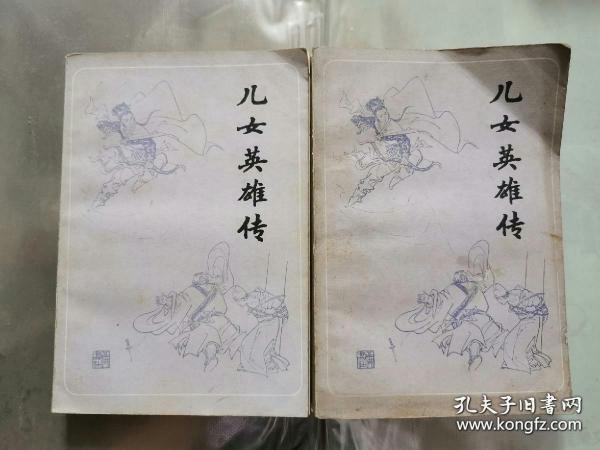 儿女英雄传
儿女英雄传
孔夫子旧书网
www.kongfz.com